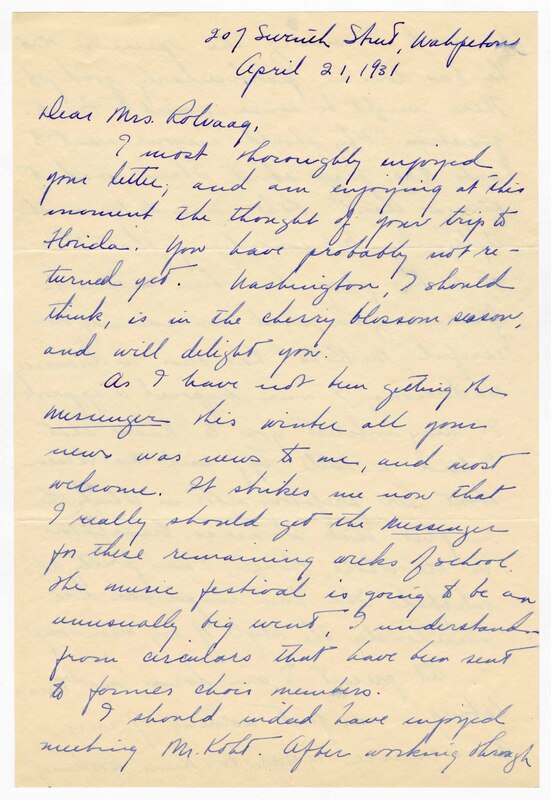 207 Seventh Street, Wahpeton
April 21, 1931
Dear Mrs. Rolvaag,
I most thoroughly enjoyed
your letter, and am enjoying at this
moment the thought of your trip to
Florida. You have probably not re-
turned yet. Washington, I should
think, is in the cherry blossom season,
and will delight you.
As I have not been getting the
Messenger this winter all your
news was news to me, and most
welcome. It strikes me now that
I really should get the Messenger
for these remaining weeks of school.
The music festival is going to be an
unusually big event, I understand
from circulars that have been sent
to former choir members.
I should indeed have enjoyed
meeting Mr. Koht. After working through